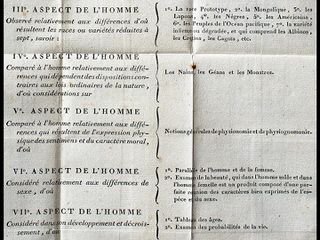 IIIᵉ. ASPECT DE L'HOMME
Observé relativement aux différences d'où
résultent les races ou variétés réduites à
sept, savoir :
1º. La race Prototype, 2º. la Mongolique, 3º. les
Lapons, 4º. les Nègres, 5º. les Américains,
6º. les Peuples de l'océan pacifique, 7º. la variété
inférieure dégradée, et qui comprend les Albinos,
les Cretins, les Cagots, etc.
IVᵉ. ASPECT DE L'HOMME
Comparé à l'homme relativement aux différences
qui dépendent des dispositions contraires
aux lois ordinaires de la nature,
d'où considérations sur
Les Nains, les Géans et les Monstres.
Vᵉ. ASPECT DE L'HOMME
Comparé à l'homme relativement aux différences
qui résultent de l'expression physique
des sentimens et du caractère moral,
d'où
Notions générales de physionomie et de physiognomonie.
VIᵉ. ASPECT DE L'HOMME
Considéré relativement aux différences de
sexe, d'où
1º. Parallèle de l'homme et de la femme.
2º. Examen de la beauté, qui dans l'homme mâle et dans
l'homme femelle est un produit composé d'une parfaite
réunion des caractères exprimés de l'espèce
et du sexe.
VIIᵉ. ASPECT DE L'HOMME
Considéré dans son développement et décroissement,
d'où
1º. Tableau des âges.
2º. Examen des probabilités de la vie.